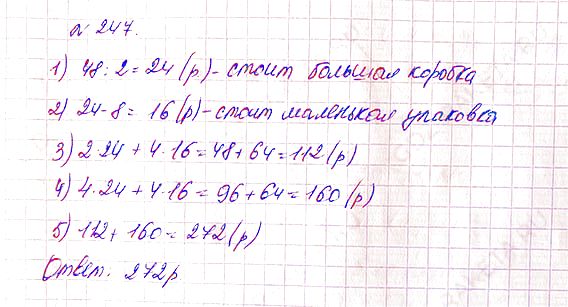 № 247.
1) 48 : 2 = 24 (р) - стоит большая коробка
2) 24-8 = 16 (р) - стоит маленькая упаковка
3) 2·24 + 4·16 = 48 + 64 = 112 (р)
4) 4·24 + 4·16 = 96 + 64 = 160 (р)
5) 112 + 160 = 272 (р)
Ответ. 272р